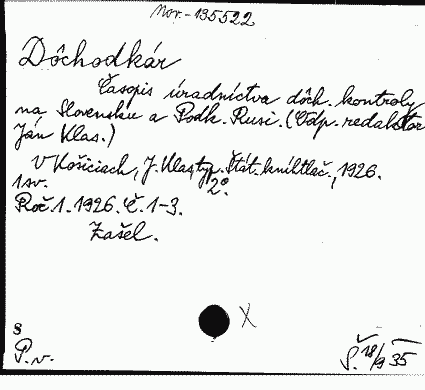 Nov.-135522
Dôchodkár
Časopis úradníctva dôch. kontroly
na Slovensku a Podk. Rusi. (Odp. redaktor
Ján Klas.)
V Košiciach, J. Klas, typ. Štát. kníhtlač., 1926.
1 sv. 2°.
Roč. 1. 1926. Č. 1-3.
Zašel.
X
8
P.v.
Š. 18/9 35